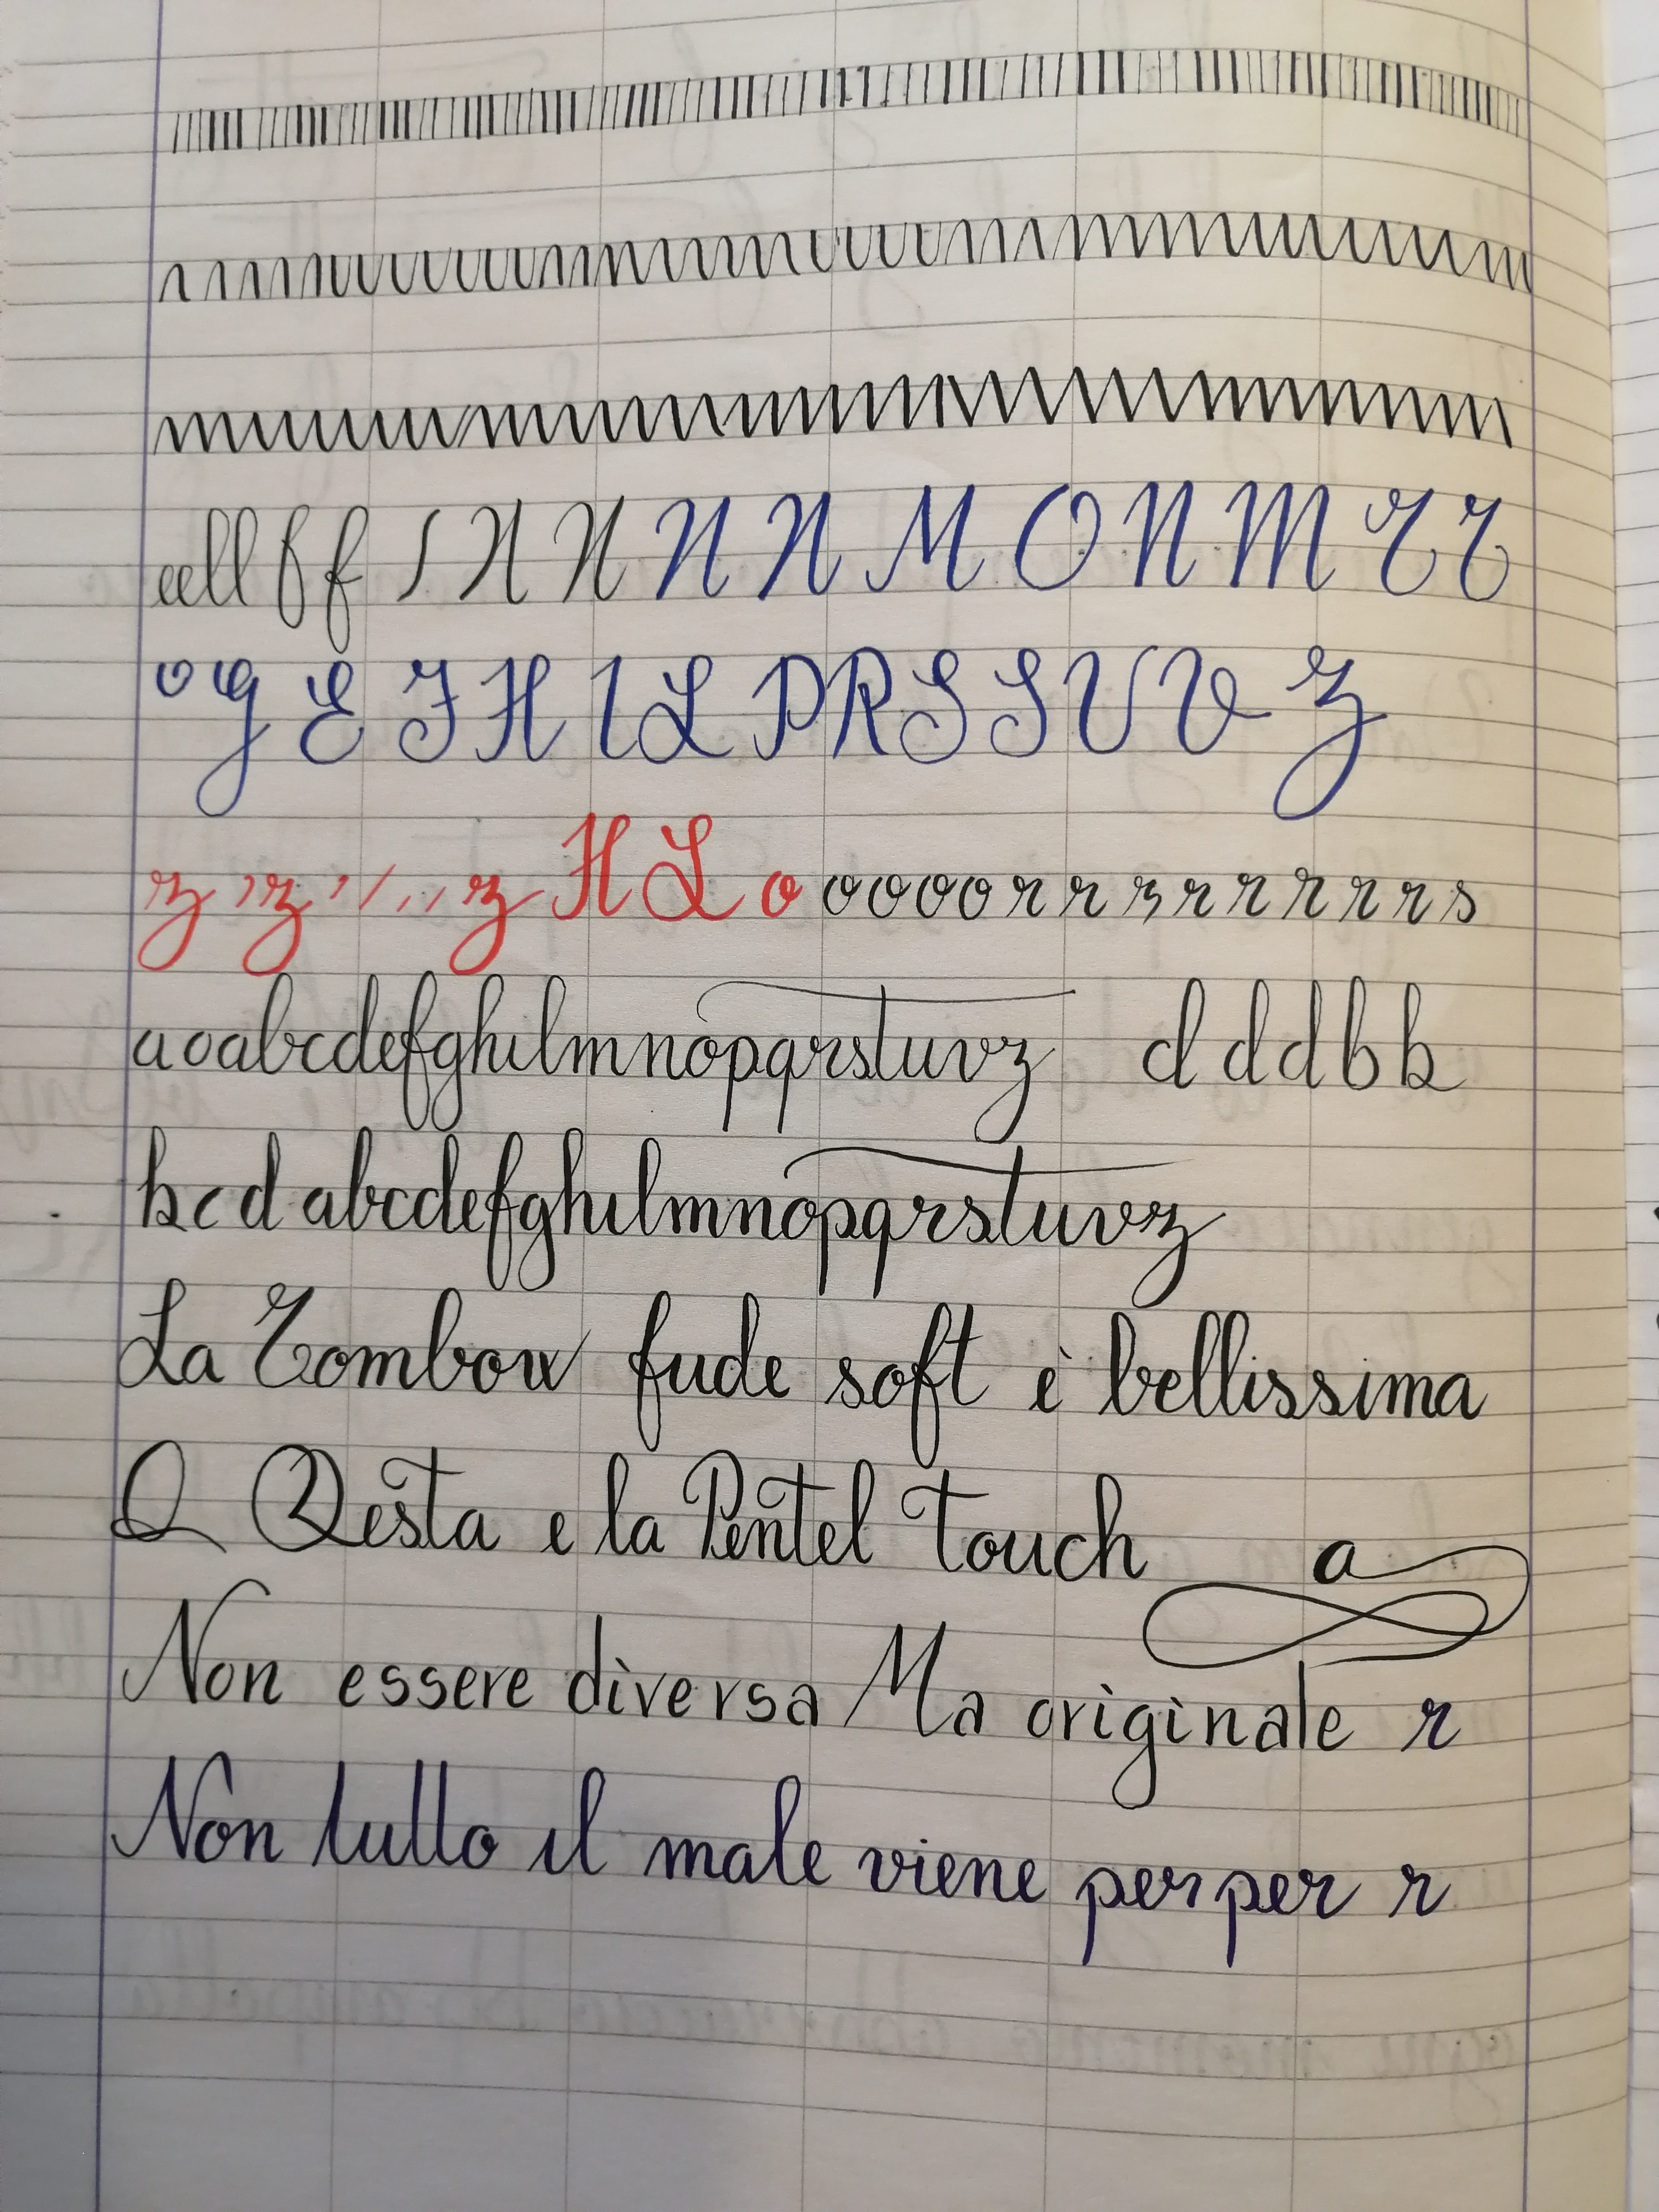 eell f f I N N N N M O N M T T
o G E F H I L P R S S U V Z
z z z H L o o o o o r r r r r r r r r s
a o abcdefghilmnopqrstuvz d d d b b
b c d abcdefghilmnopqrstuvz
La Tombow fude soft è bellissima
Q Qesta e la Pentel Touch a
Non essere diversa Ma originale r
Non tutto il male viene per per r